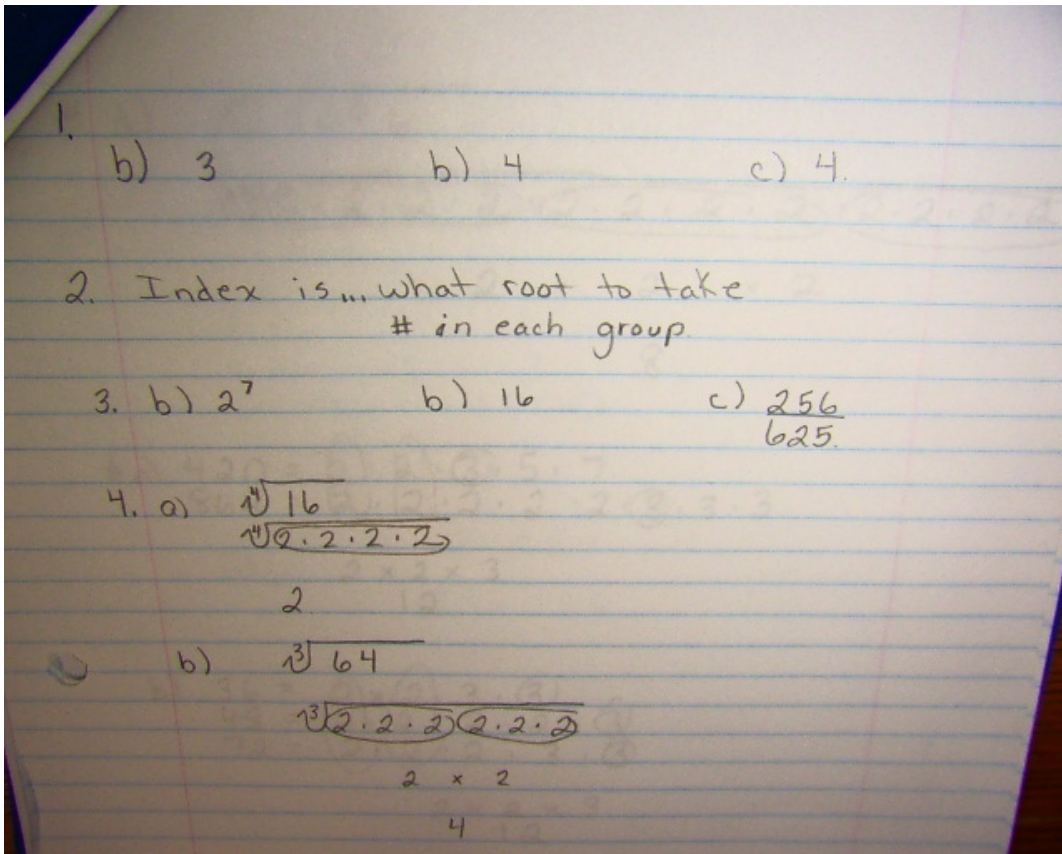 1.
b) 3 b) 4 c) 4.
2. Index is... what root to take
# in each group.
3. b) 2⁷ b) 16 c) 256/625.
4. a) ∜16
∜2·2·2·2
2
b) ∛64
∛2·2·2 2·2·2
2 × 2
4